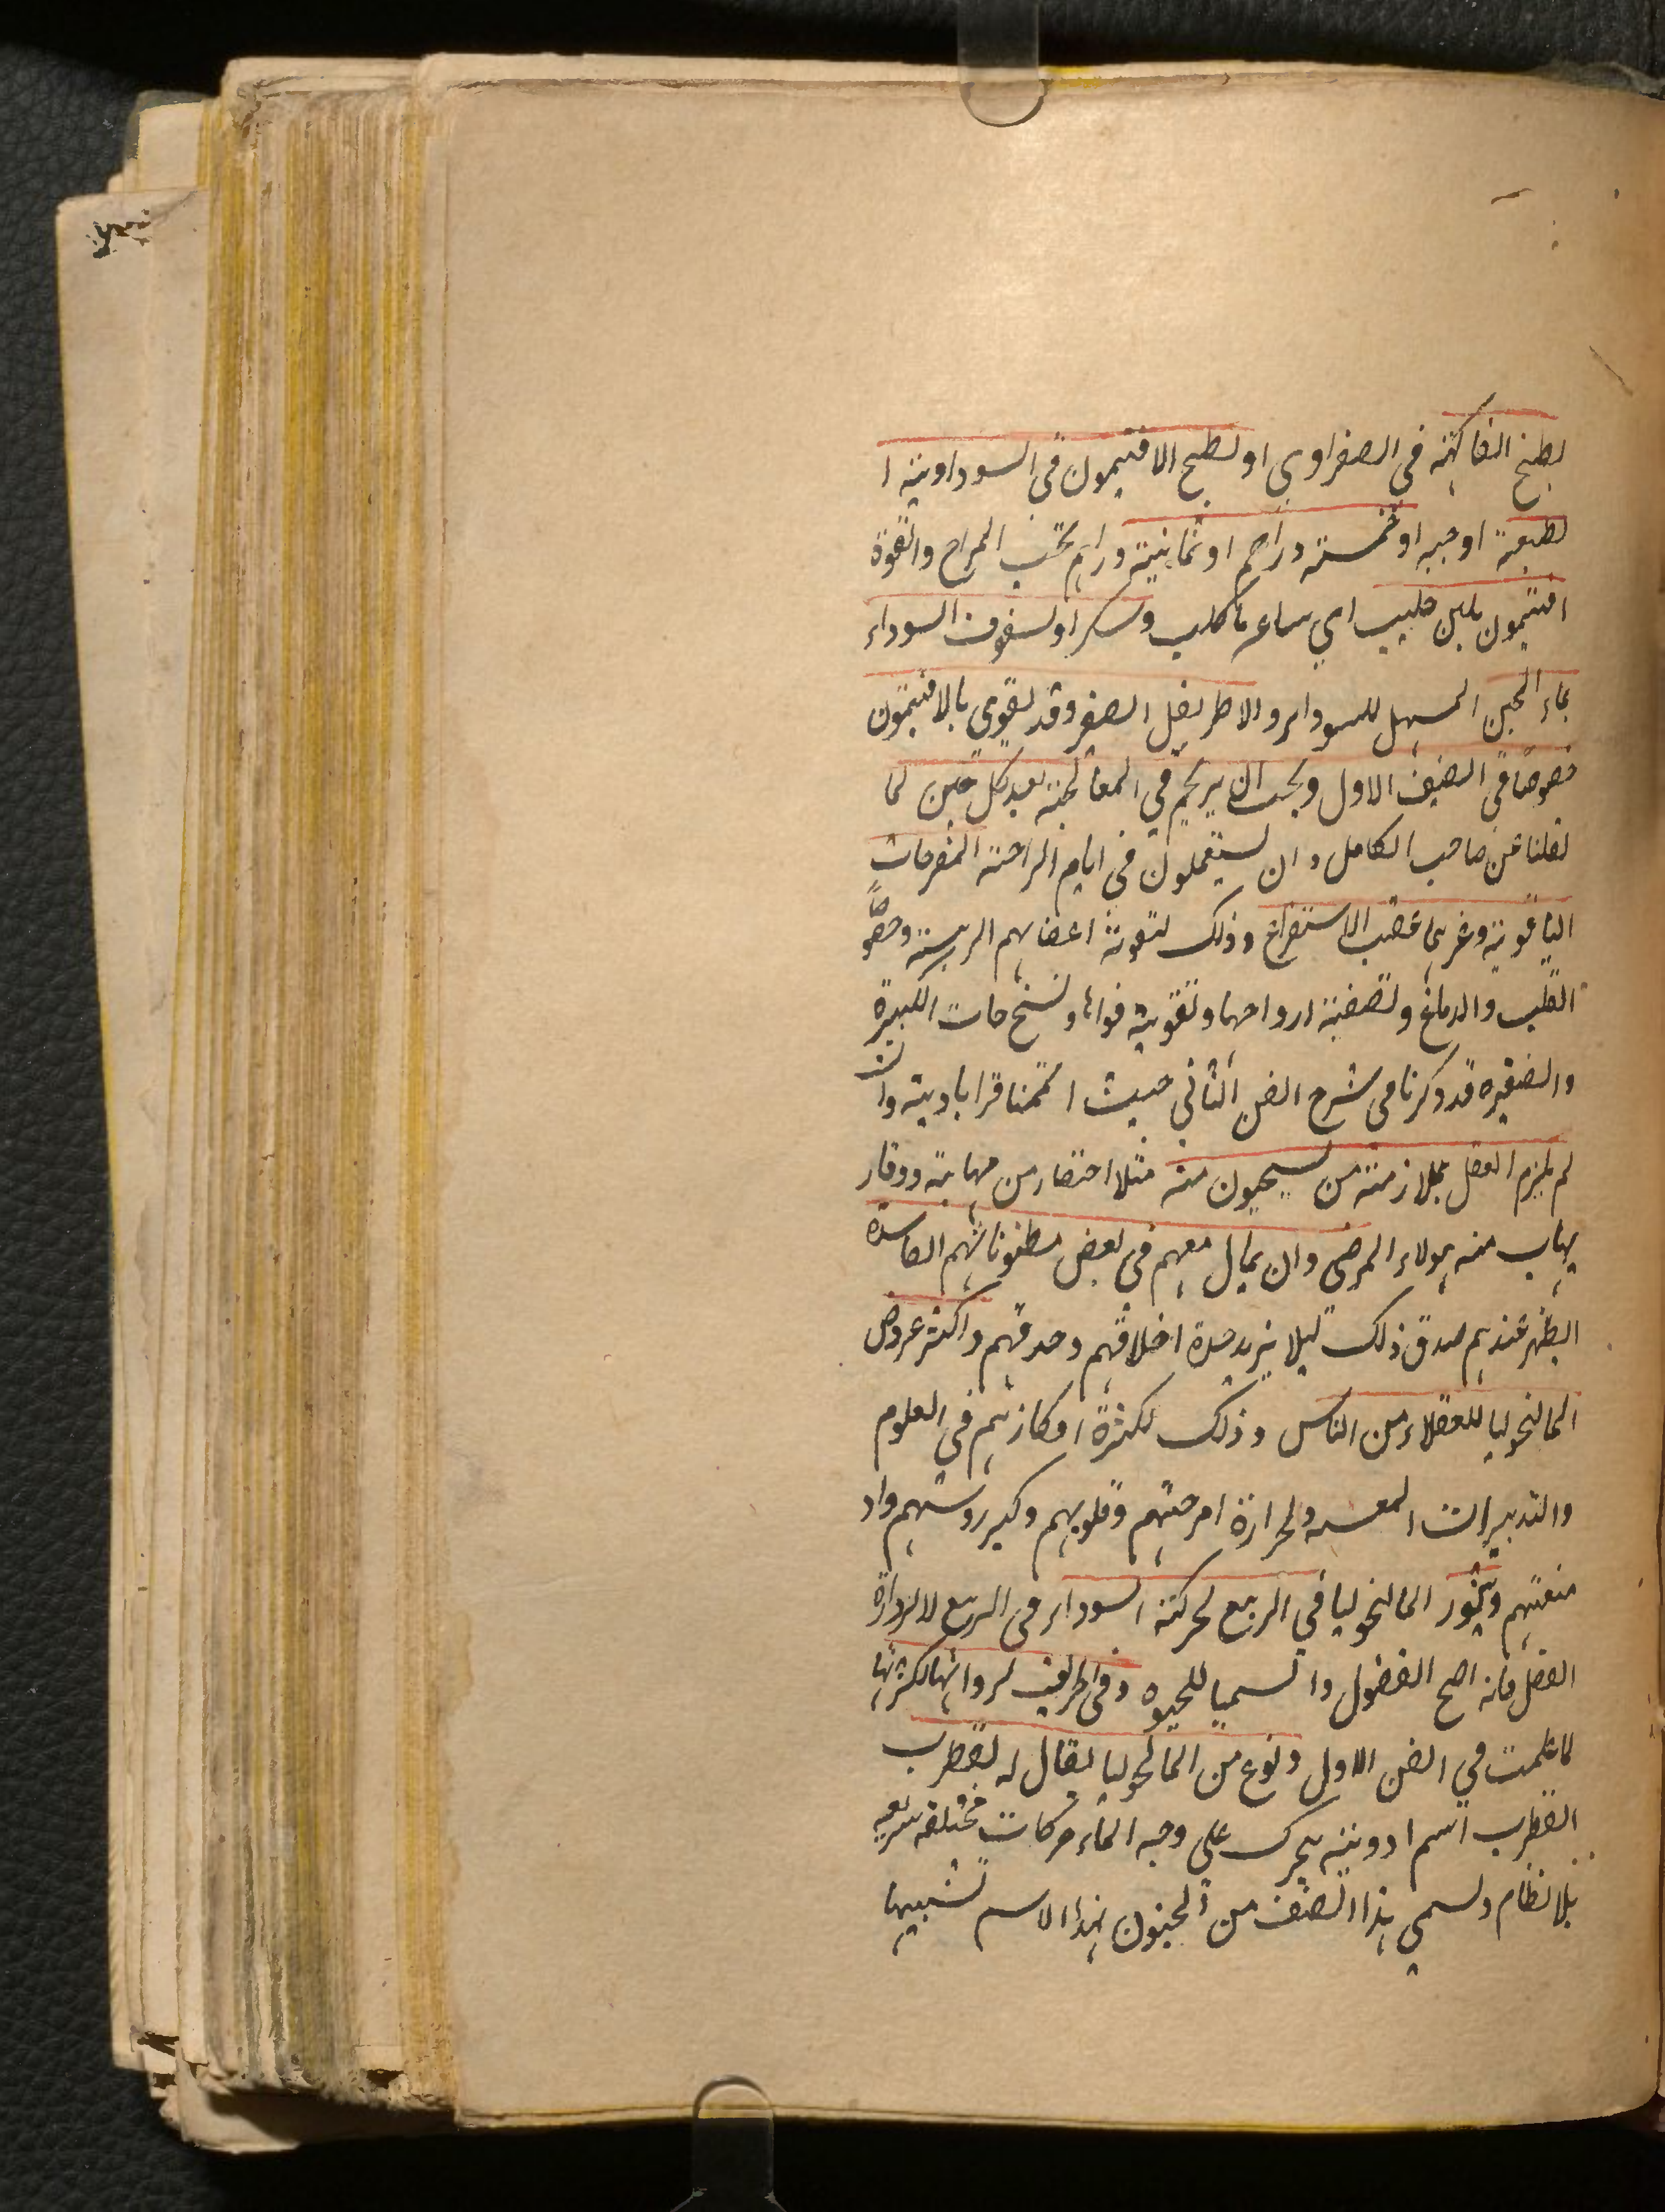 بطبخ الفاكهة في الصفراوي او بطبخ الافتيمون في السوداوية ا
لطبعية او حبه او خمسة دراهم او ثمانية دراهم بحسب المزاج والقوة
افتيمون بلبن حليب اي ساعة ما كلب وسكر او لسفوف السوداء
بماء الجبن المسهل للسوداء والاطريفل الصغير وقد يقوي بالافتيمون
خصوصًا في الصنف الاول ويجب ان يريحهم في المعالجة بعد كل حين لما
نقلنا عن صاحب الكامل وان يستعملون في ايام الراحة المفرحات
الياقوتية وغيرها عقب الاستفراغ وذلك لتقوية اعضايهم الرييسة وخصوصًا
القلب والدماغ وتصفية ارواحهما وتقوية قواها ونسخ حات الكبيرة
والصغيره قد ذكرنا في شرح الفن الثاني حيث اتممنا قراباديته وان
لم يلزم العقل بملازمته من يستحيون منه مثلا احتضار من مهابة ووقار
يهاب منه هولاء المرضى وان يمايل معهم في بعض مظنوناتهم الفاسدة
اليظهر عندهم صدق ذلك ليلا يزيد حدة اخلاقهم وحدقهم واكثر عروض
المالنخوليا للعقلاء من الناس وذلك لكثرة افكارهم في العلوم
والتدبيرات المعـ ولحرارة امزجتهم وقلوبهم وكبر روسهم واد
منعتهم ويثور المالنخوليا في الربيع لحركة السوداء في الربيع لا لرداءة
الفصل فانه اصح الفصول وانسبها للحيوه وفي الخريف لرداتها لكثرتها
لما علمت في الفن الاول ونوع من المالنخوليا يقال له القطرب
القطرب اسم ادوبية يتحرك على وجه الماء حركات مختلفه سريعه
بلا نظام ويسمي هذا الصنف من الجنون بهذا الاسم تشبيها